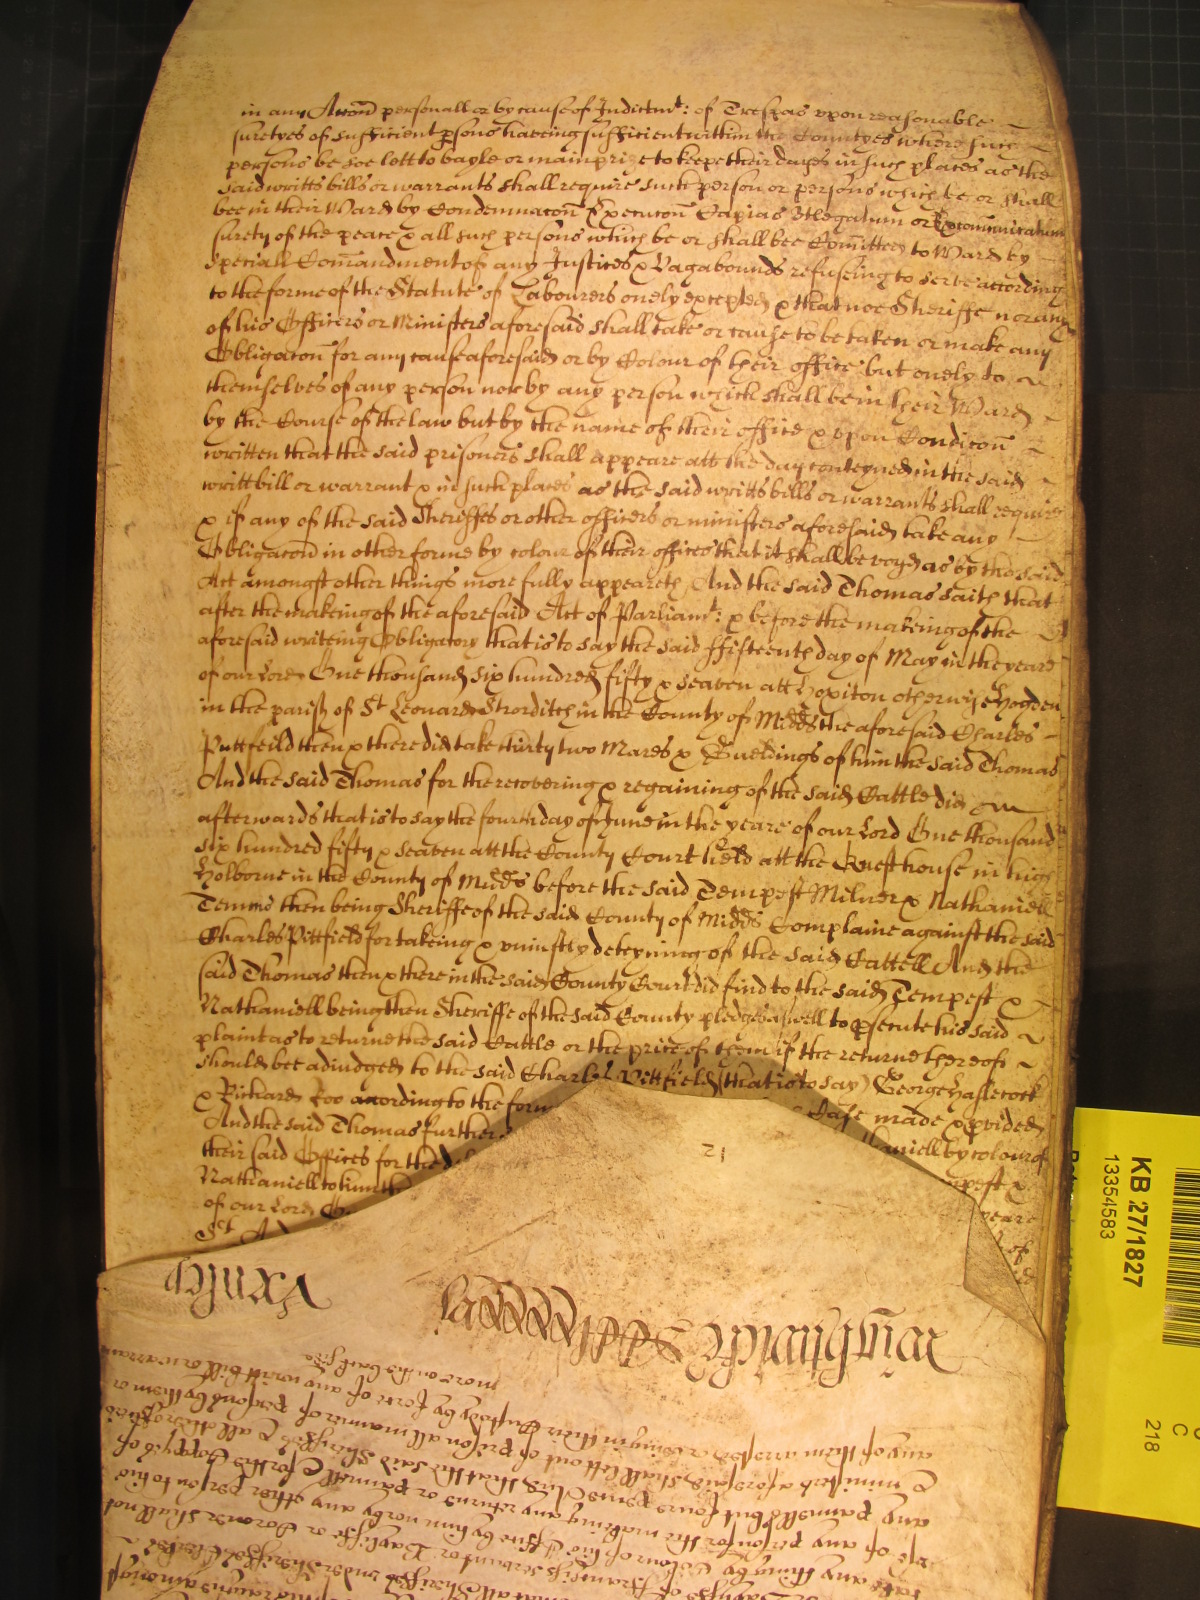 in any Accōn personall or by cause of Indictmt: of Trespas upon reasonable
suretyes of sufficient psons haveing sufficient within the Countyes where such
persons be soe lett to bayle or mainprize to keepe their dayes in such places as the
said writts bills or warrants shall require such person or persons which be or shall
bee in their Ward by Condemnacōn Execucōn Capias Utlegatum or Excommunicatum
surety of the peace & all such persons which be or shall bee Comitted to Ward by
speciall Comandment of any Justices & Vagabounds refuseing to serve according
to the forme of the Statute of Labourers onely excepted & that noe Sheriffe nor any
of his Officers or Ministers aforesaid shall take or cause to be taken or make any
Obligacōn for any cause aforesaid or by Colour of their office but onely to
themselves of any person nor by any person which shall be in their Ward
by the Course of the law but by the name of their office & upon Condicōn
written that the said prisoners shall appeare att the day conteyned in the said
writt bill or warrant & in such places as the said writts bills or warrants shall require
& if any of the said Sheriffes or other officers or ministers aforesaid take any
Obligacōn in other forme by colour of their offices that it shall be voyd as by the said
Act amongst other things more fully appeareth And the said Thomas saith that
after the makeing of the aforesaid Act of Parliamt: & before the makeing of the
aforesaid writeing Obligatory that is to say the said ffifteenth day of May in the yeare
of our Lord One thousand six hundred fifty & seaven att Hoxton otherwise Hogden
in the parish of St Leonard Shorditch in the County of Midds the aforesaid Charles
Pittfeild then & there did take thirty two Mares & Gueldings of him the said Thomas
And the said Thomas for the recovering & regaining of the said Cattle did
afterwards that is to say the fourth day of June in the yeare of our Lord One thousand
six hundred fifty & seaven att the County Court held att the Quest house in high
Holborne in the County of Midds before the said Tempest Milner & Nathaniell
Temms then being Sheriffe of the said County of Midds Complaine against the said
Charles Pittfield for takeing & uniustly deteyning of the said Cattell And the
said Thomas then & there in the said County Court did find to the said Tempest &
Nathaniell being then Sheriffe of the said County pledges aswell to psecute his said
plaint as to returne the said Cattle or the price of them if the returne thereof
should bee adiudged to the said Charles Pittfield (that is to say) George Haslecock
& Richard Roo according to the form Case made & pvided
And the said Thomas further haniell by colour of
their said Offices for the
Nathaniell to him the mpest &
of our Lord yeare
St
21
more on the back side
any of them arrested or being in their Custody by force of any writt bill or warrant
Ministers aforesaid shall lett out of prison all manner of persons
any pannell but foure pence And that the said Sheriffes & all other officers
of any person for the making any returne or pannell & for the Coppy of
take any thing by Colour of his Office by him nor by any other person to his
KB 27/1827
13354583
C
218